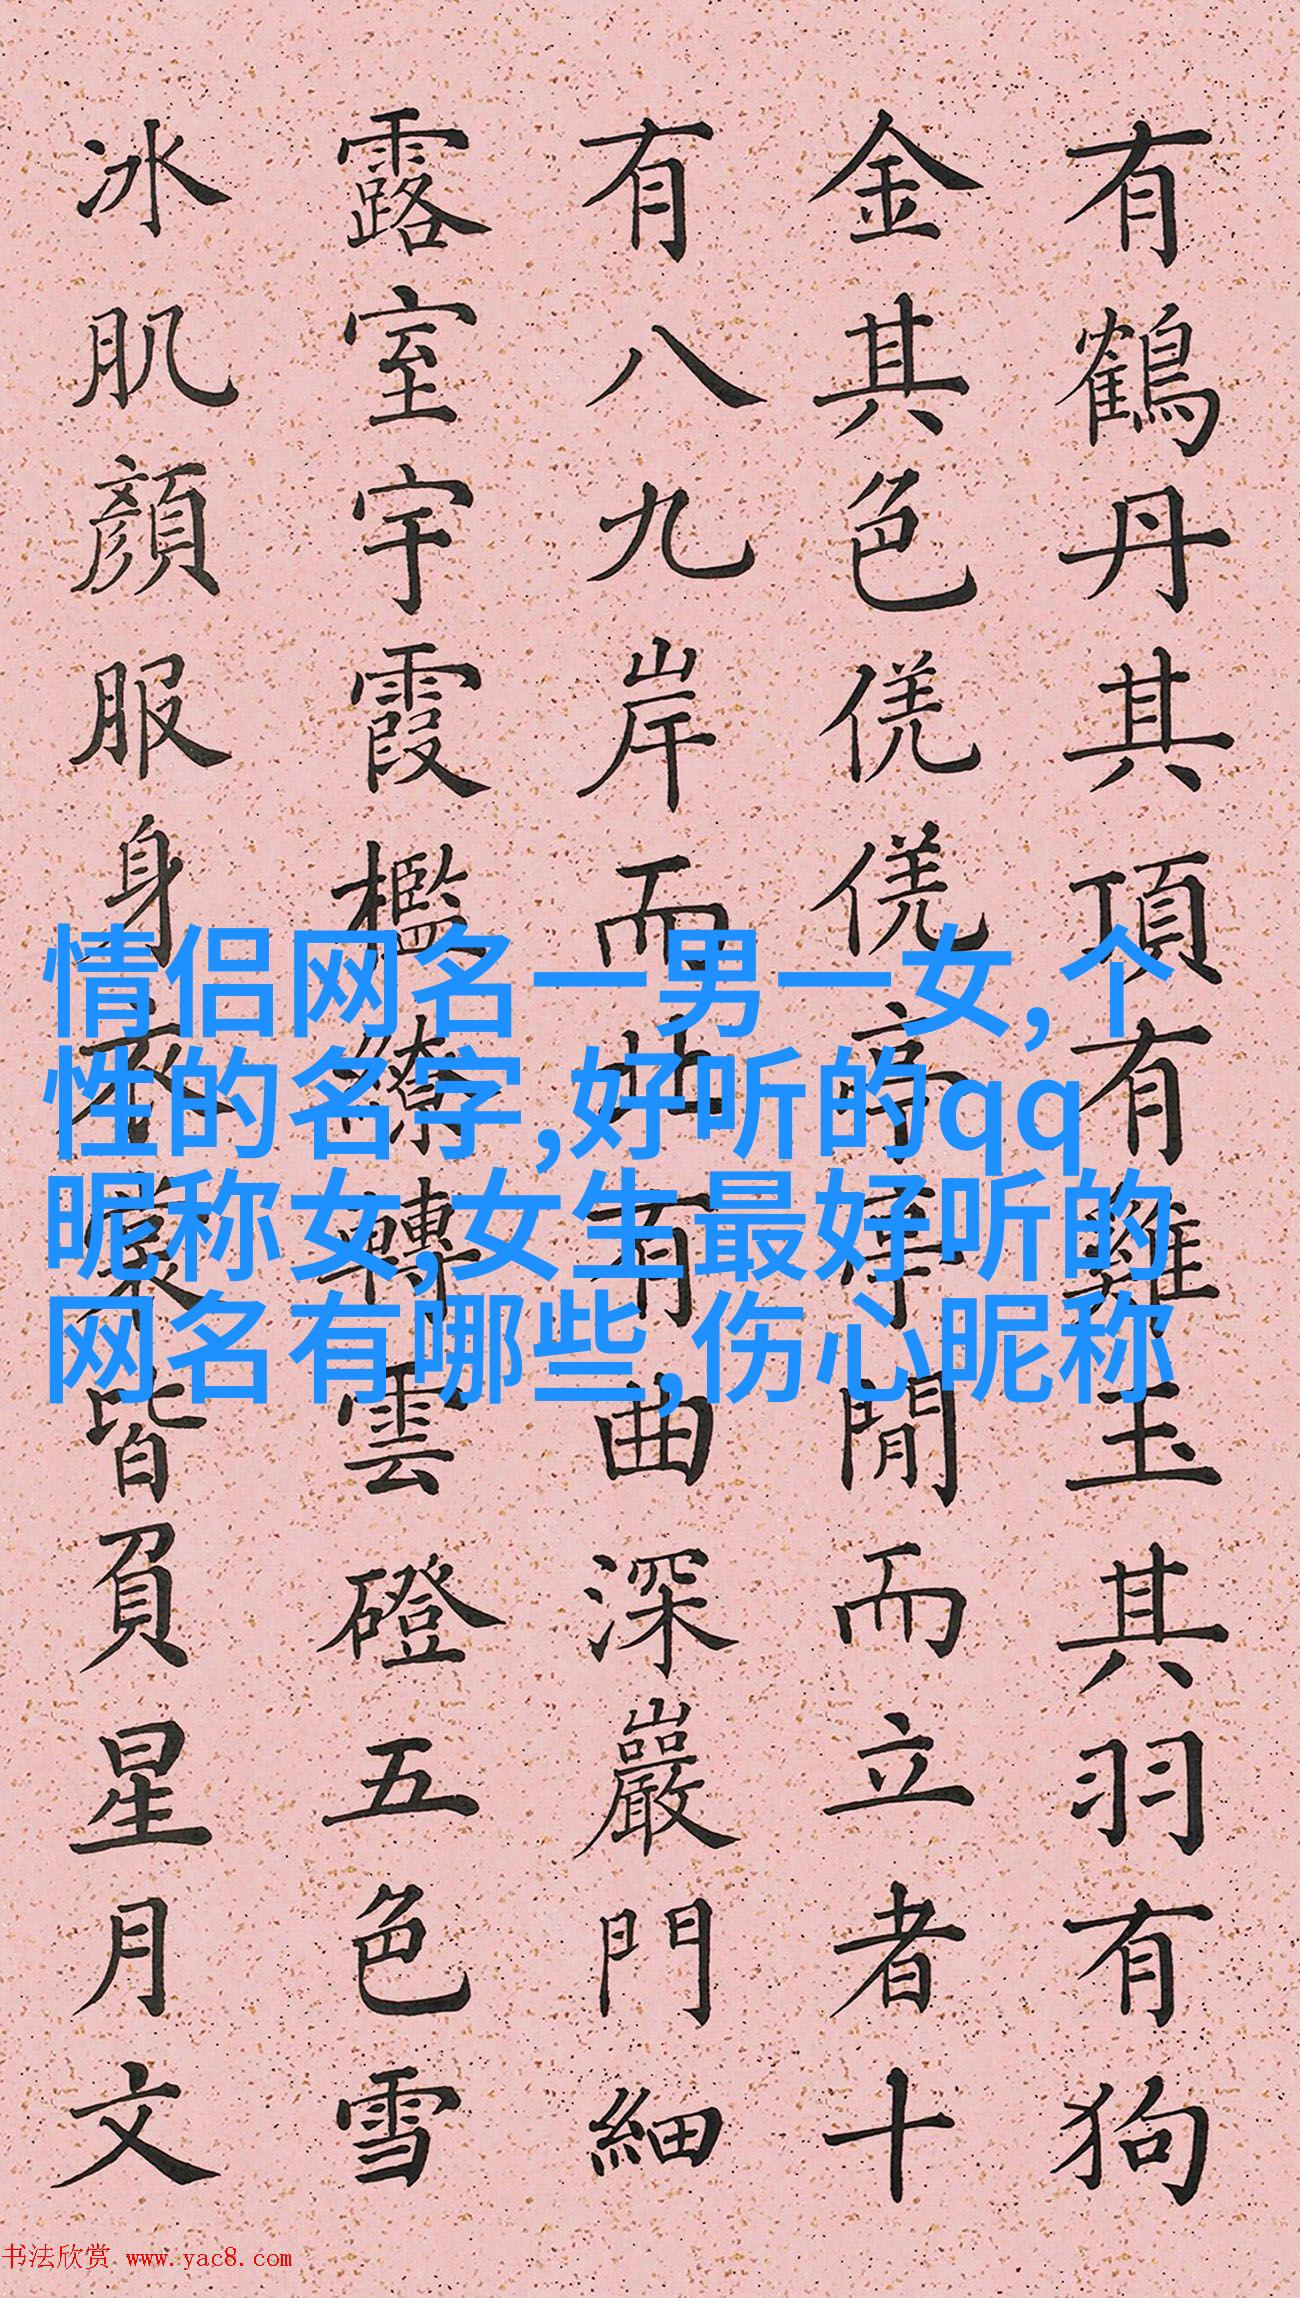 有鶴丹其頂有雞玉其羽有狗
金其色亭亭閒而立者十
有八九岸而有曲深巖門細
露室宇霞檻繚轉雲磴五色雪
冰肌顏服身衣裳皆負星月文
情侣网名一男一女,个
性的名字,好听的qq
昵称女,女生最好听的
网名有哪些,伤心昵称
书法欣赏 www.yac8.com